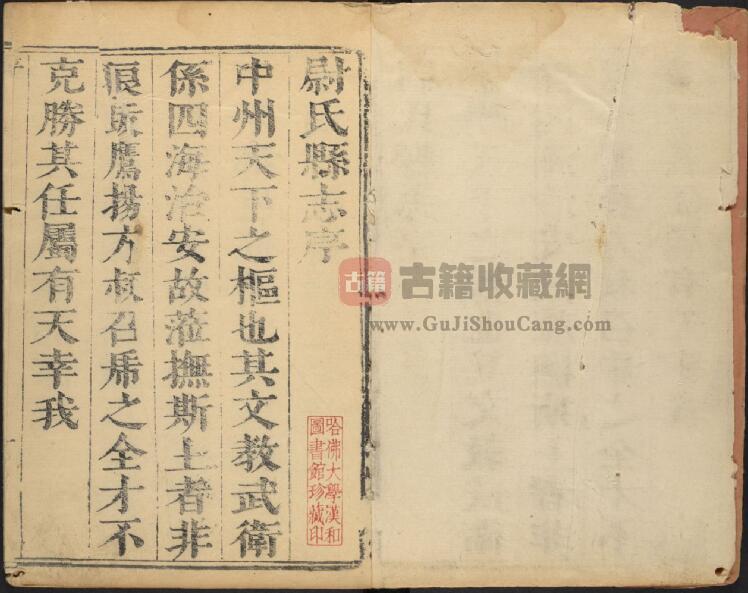 尉氏縣志序
中州天下之樞也其文教武衛
係四海治安故蒞撫斯土者非
鷹揚方叔召虎之全才不
克勝其任屬有天幸我
哈佛大學漢和
圖書館珍藏印
古籍
古籍收藏網
www.GuJiShouCang.com